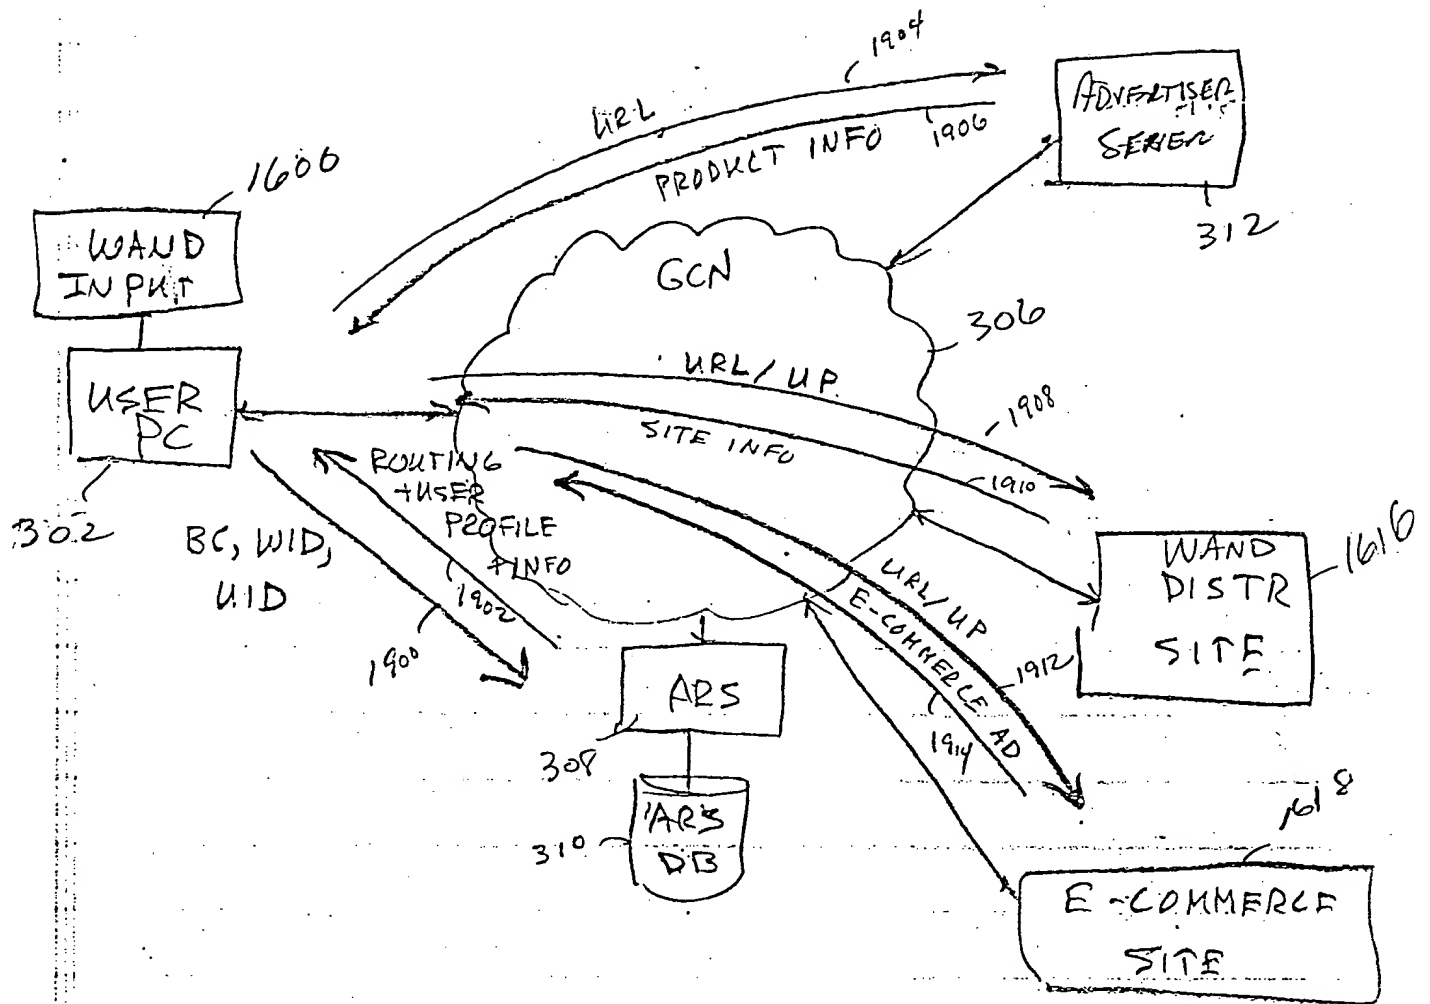 1904
URL
1906
PRODUCT INFO
ADVERTISER
SERVER
312
1600
WAND
INPUT
GCN
306
USER
PC
302
URL / UP
1908
SITE INFO
1910
ROUTING
+USER
PROFILE
+INFO
BC, WID,
UID
1902
1900
WAND
DISTR
SITE
1616
URL/UP
1912
E-COMMERCE AD
1914
ARS
308
ARS
DB
310
1618
E-COMMERCE
SITE